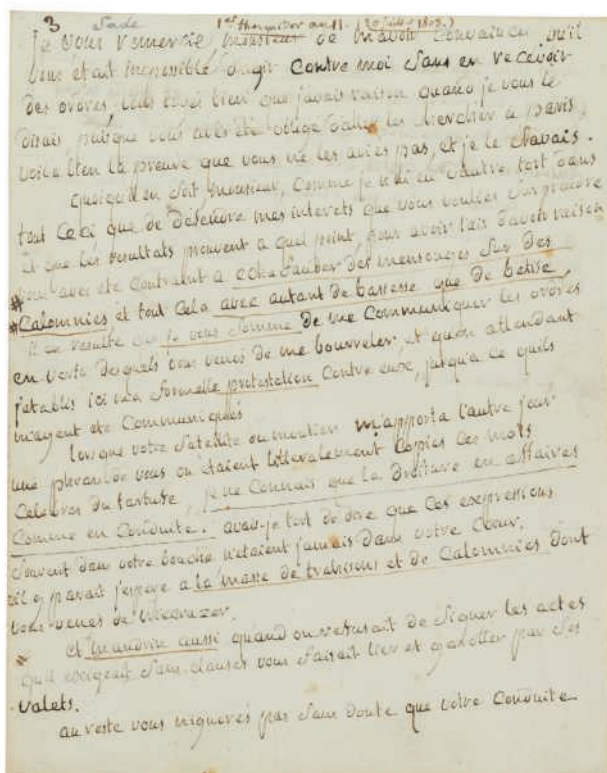 3 Sade 1er thermidor an 11. (20 juillet 1803.)
je vous remercie, monsieur de m'avoir convaincu qu'il
vous etait impossible d'agir contre moi sans en recevoir
des ordres, vous voiés bien que j'avais raison quand je vous le
disais puisque vous avés été obligé d'aller les chercher a paris,
voila bien la preuve que vous ne les aviés pas, et je le savais.
quoiqu'il en soit, monsieur, comme je n'ai eu d'autre tort dans
tout ceci que de deffendre mes interets que vous vouliés
et que les resultats prouvent a quel point, pour avoir l'air d'avoir raison
vous avés été contraint a echafauder des mensonges sur des
#calomnies, et tout cela avec autant de bassesse que de betise,
il en resulte que je vous somme de me communiquer les ordres
en vertu desquels vous venés de me bourreler, et qu'en attendant
j'etablis ici ma formelle protestation contre eux, jusqu'a ce qu'ils
m'ayent eté communiqués
lorsque votre satellite du moutier m'apporta l'autre jour
une phrase de vous ou etaient litteralement copiés ces mots
celebres du tartufe, je ne connais que la droiture en affaires
comme en conduite. avais-je tort de dire que ces expressions
souvent dans votre bouche n'etaient jamais dans votre coeur.
il y parait j'espere a la masse de trahisons et de calomnies dont
vous venés de m'ecraser.
et mandrin aussi quand on refusait de signer les actes
qu'il exigeait sans clauses vous faisait lier et garotter par ses
valets.
au reste vous n'ignorés pas sans doute que votre conduite